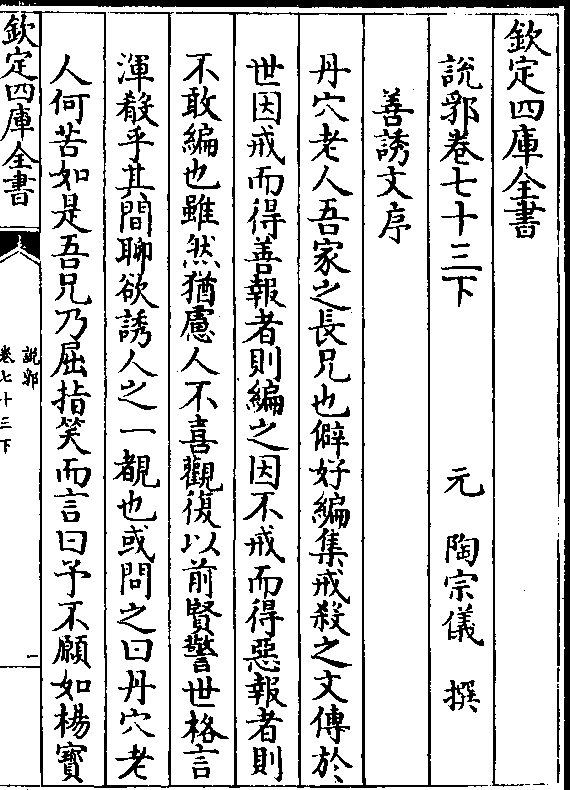 欽定四庫全書
說郛卷七十三下
元 陶宗儀 撰
善誘文序
丹穴老人吾家之長兄也僻好編集戒殺之文傳於
世因戒而得善報者則編之因不戒而得惡報者則
不敢編也雖然猶慮人不喜觀復以前賢警世格言
渾殽乎其間聊欲誘人之一覩也或問之曰丹穴老
人何苦如是吾兄乃屈指笑而言曰予不願如楊寳
欽定四庫全書
說郛
卷七十三下
一